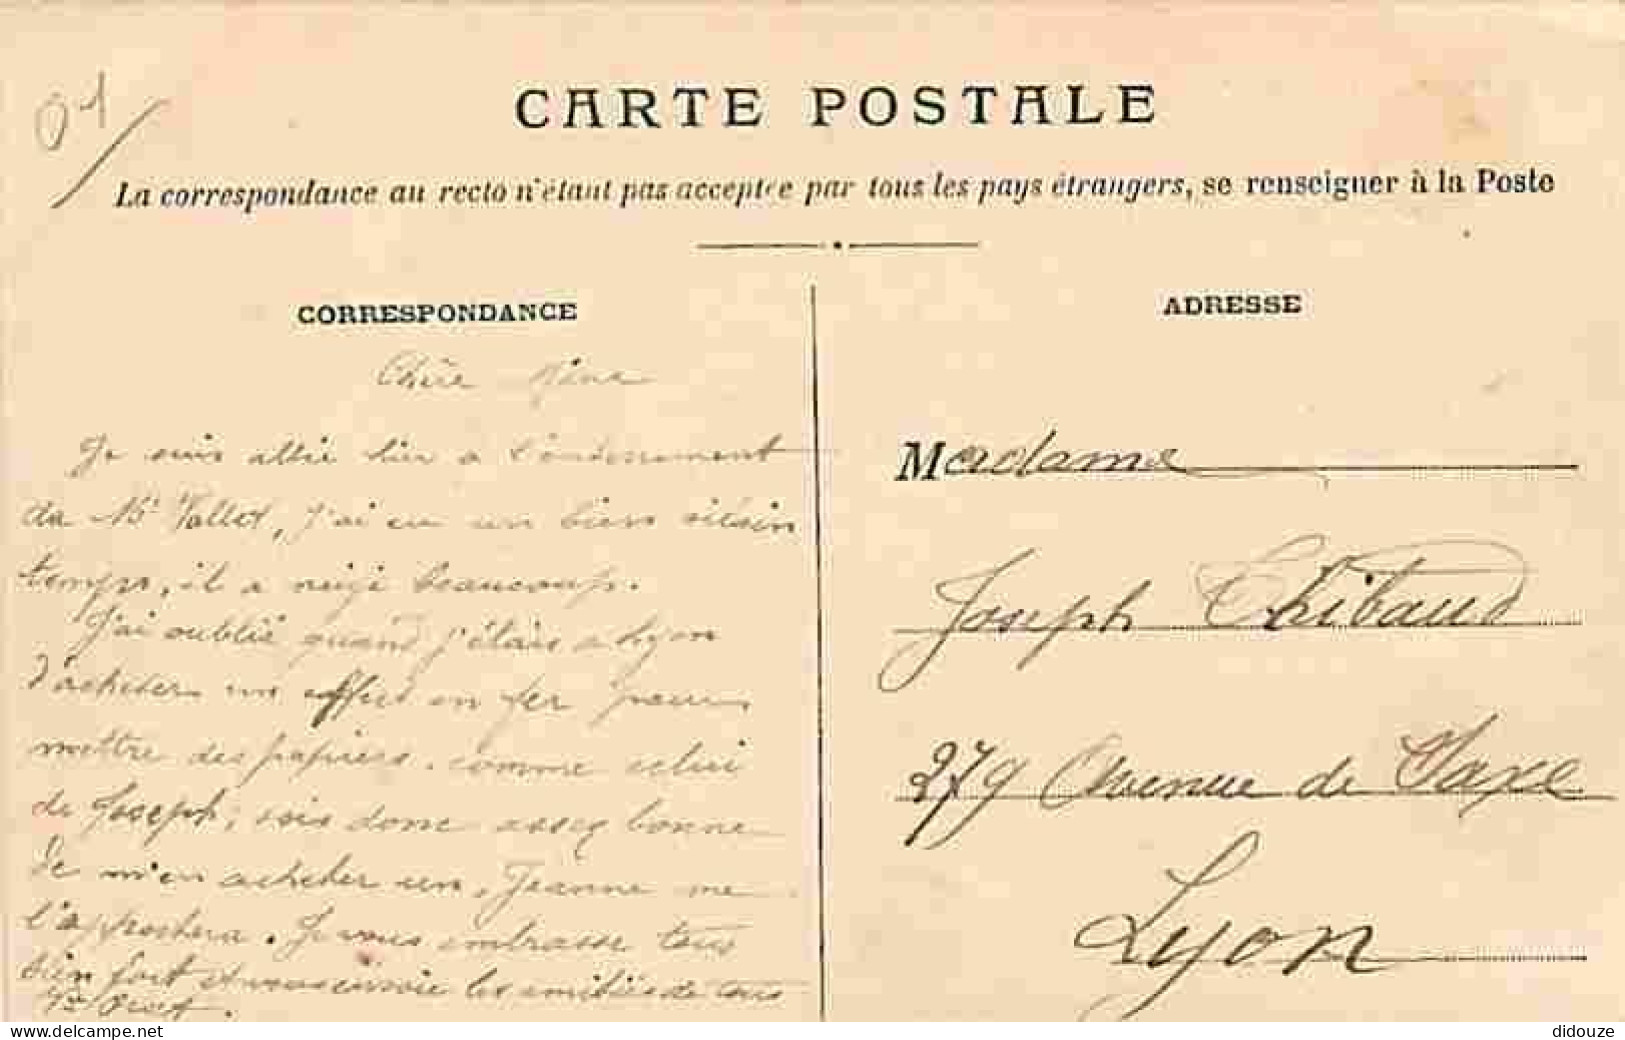 01
CARTE POSTALE
La correspondance au recto n'étant pas acceptée par tous les pays étrangers, se renseigner à la Poste
CORRESPONDANCE
Chère
Je suis allée hier a l'enterrement
de Mr Vallet, j'ai eu un bien vilain
temps, il a neigé beaucoup.
J'ai oublié quand j'étais a Lyon
d'acheter un en fer pour
mettre des papiers. comme celui
de Joseph, sois donc assez bonne
de m'en acheter un, Jeanne me
l'apportera. Je vous embrasse tous
bien fort et vous envoie les amitiés de tous
ADRESSE
Madame
Joseph Thibaud
279 Avenue de Saxe
Lyon
delcampe.net
didouze